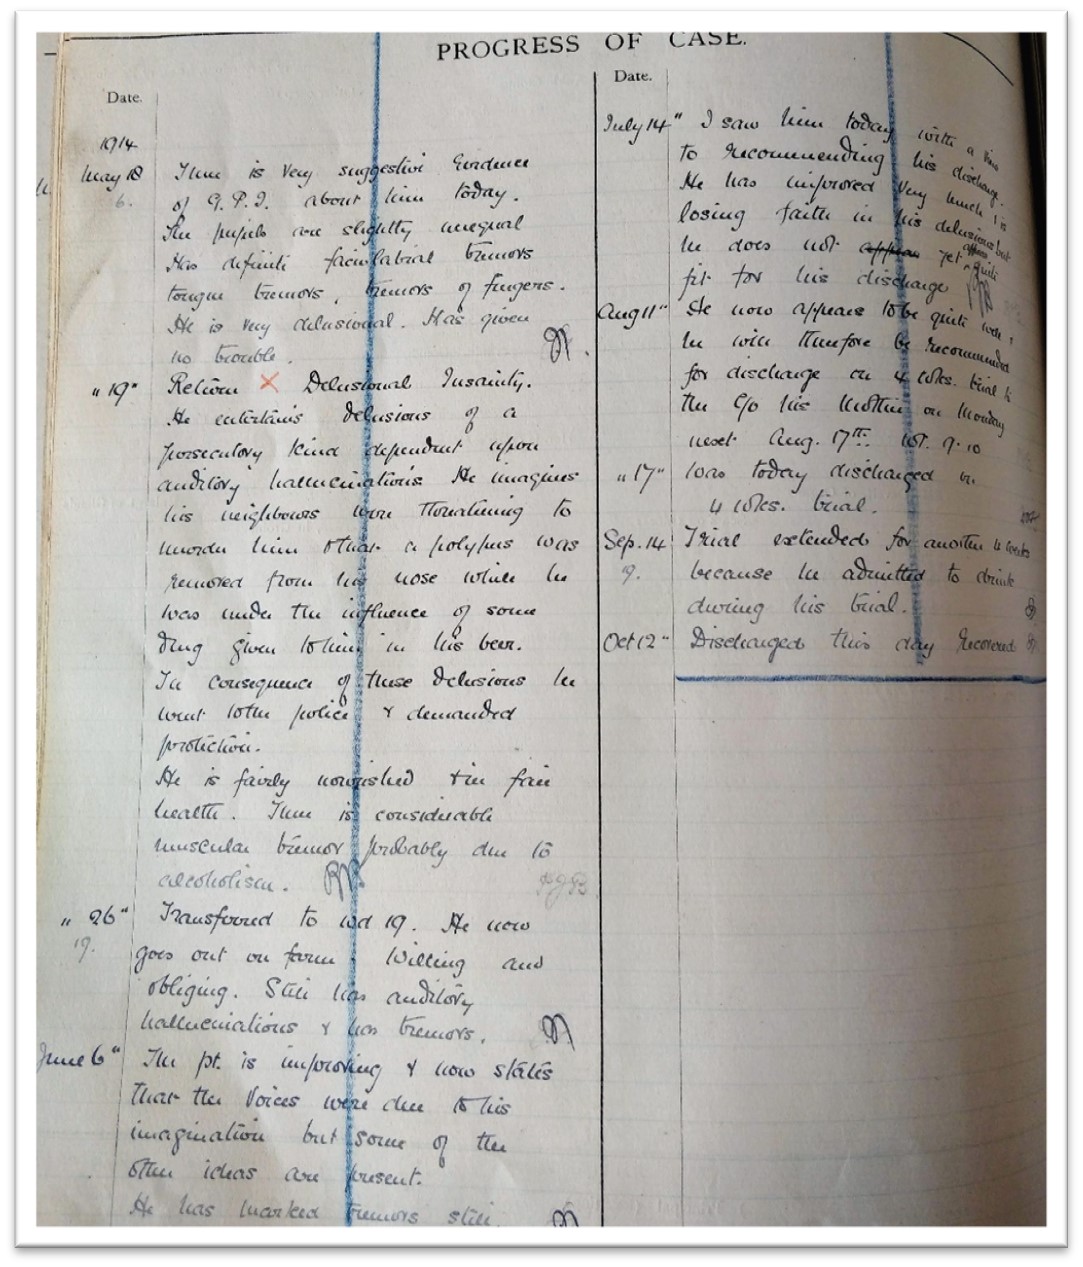 PROGRESS OF CASE.
Date.
1914
May 18
6.
There is very suggestive Evidence
of G.P.I. about him today.
The pupils are slightly unequal
Has definite facio labial tremors
tongue tremors, tremors of fingers.
He is very delusional. Has given
no trouble.
" 19"
Return × Delusional Insanity.
He entertains delusions of a
persecutory kind dependent upon
auditory hallucinations. He imagines
his neighbours were threatening to
murder him & that a polypus was
removed from his nose while he
was under the influence of some
drug given to him in his beer.
In consequence of these delusions he
went to the police & demanded
protection.
He is fairly nourished & in fair
health. There is considerable
muscular tremor probably due to
alcoholism.
" 26"
19.
Transferred to Wd 19. He now
goes out on farm. Willing and
obliging. Still has auditory
hallucinations & has tremors.
June 6"
The pt. is improving & now states
that the Voices were due to his
imagination but some of the
other ideas are present.
He has marked tremors still.
Date.
July 14"
I saw him today with a view
to recommending his discharge.
He has improved very much & is
losing faith in his delusions but
he does not appear yet quite
fit for his discharge
Aug 11"
He now appears to be quite well &
he will therefore be recommended
for discharge on 4 wks. trial to
the c/o his Mother on Monday
next Aug. 17th. WT. 9.10
" 17"
Was today discharged on
4 wks. trial.
Sep. 14
19.
Trial extended for another 4 weeks
because he admitted to drink
during his trial.
Oct 12"
Discharged this day Recovered